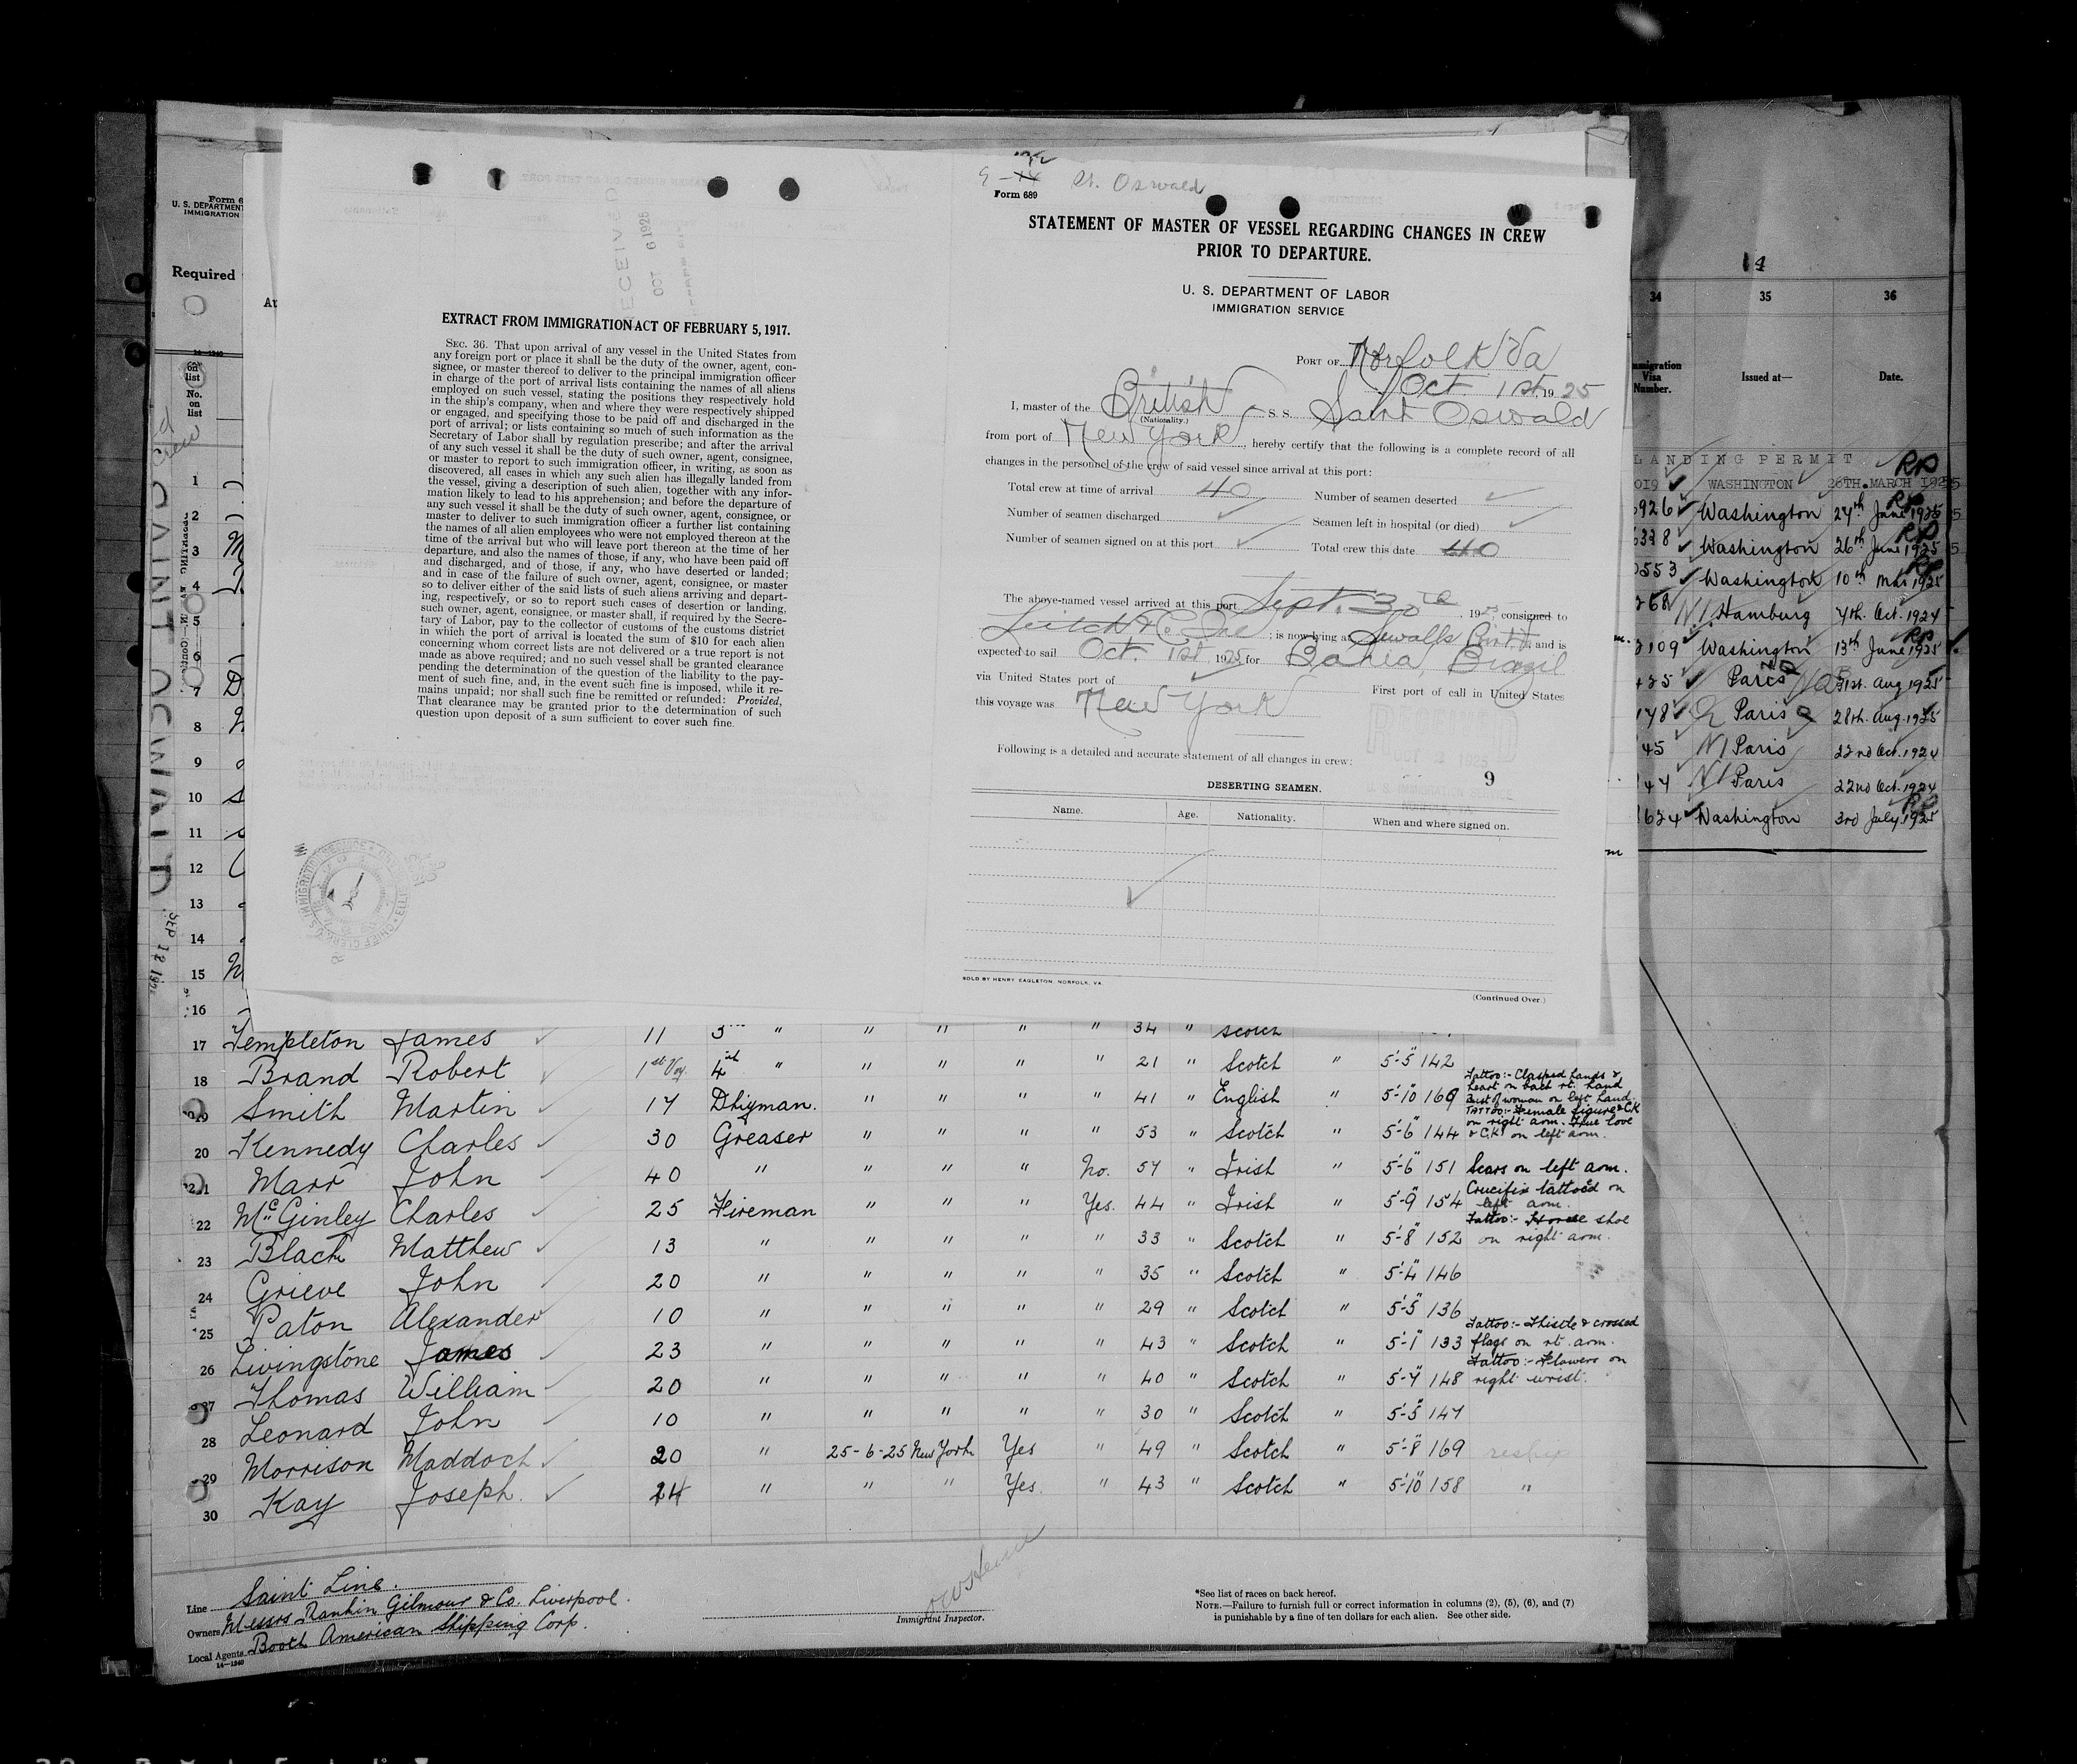 9 - 14 St. Oswald
Form 689
STATEMENT OF MASTER OF VESSEL REGARDING CHANGES IN CREW
PRIOR TO DEPARTURE.
U. S. DEPARTMENT OF LABOR
IMMIGRATION SERVICE
PORT OF Norfolk Va
Oct. 1st, 1925
I, master of the British S. S. Saint Oswald
(Nationality.)
from port of New York, hereby certify that the following is a complete record of all
changes in the personnel of the crew of said vessel since arrival at this port:
Total crew at time of arrival 40 Number of seamen deserted
Number of seamen discharged Seamen left in hospital (or died)
Number of seamen signed on at this port Total crew this date 40
The above-named vessel arrived at this port Sept. 30, 1925 consigned to
; is now lying at Sewalls Point, and is
expected to sail Oct. 1st, 1925 for Bahia, Brazil
via United States port of First port of call in United States
this voyage was New York
Following is a detailed and accurate statement of all changes in crew:
9
DESERTING SEAMEN.
Name. Age. Nationality. When and where signed on.
SOLD BY HENRY EAGLETON, NORFOLK, VA.
(Continued Over.)
RECEIVED
OCT 6 1925
EXTRACT FROM IMMIGRATION ACT OF FEBRUARY 5, 1917.
SEC. 36. That upon arrival of any vessel in the United States from
any foreign port or place it shall be the duty of the owner, agent, con-
signee, or master thereof to deliver to the principal immigration officer
in charge of the port of arrival lists containing the names of all aliens
employed on such vessel, stating the positions they respectively hold
in the ship's company, when and where they were respectively shipped
or engaged, and specifying those to be paid off and discharged in the
port of arrival; or lists containing so much of such information as the
Secretary of Labor shall by regulation prescribe; and after the arrival
of any such vessel it shall be the duty of such owner, agent, consignee,
or master to report to such immigration officer, in writing, as soon as
discovered, all cases in which any such alien has illegally landed from
the vessel, giving a description of such alien, together with any infor-
mation likely to lead to his apprehension; and before the departure of
any such vessel it shall be the duty of such owner, agent, consignee, or
master to deliver to such immigration officer a further list containing
the names of all alien employees who were not employed thereon at the
time of the arrival but who will leave port thereon at the time of her
departure, and also the names of those, if any, who have been paid off
and discharged, and of those, if any, who have deserted or landed;
and in case of the failure of such owner, agent, consignee, or master
so to deliver either of the said lists of such aliens arriving and depart-
ing, respectively, or so to report such cases of desertion or landing,
such owner, agent, consignee, or master shall, if required by the Secre-
tary of Labor, pay to the collector of customs of the customs district
in which the port of arrival is located the sum of $10 for each alien
concerning whom correct lists are not delivered or a true report is not
made as above required; and no such vessel shall be granted clearance
pending the determination of the question of the liability to the pay-
ment of such fine, and, in the event such fine is imposed, while it re-
mains unpaid; nor shall such fine be remitted or refunded: Provided,
That clearance may be granted prior to the determination of such
question upon deposit of a sum sufficient to cover such fine.
Form 6
U. S. DEPARTMENT
IMMIGRATION
Required
No.
on
list
SAINT OSWALD
1
2
3
4
5
6
7
8
9
10
11
12
13
14
15
16
34 35 36
Immigration
Visa
Number. Issued at— Date.
LANDING PERMIT RP
019 WASHINGTON 26TH. MARCH 1925
926 Washington 24th June 1925
6328 Washington 26th June 1925
0553 Washington 10th Mar 1925
268 Hamburg 4th. Oct. 1924
3109 Washington 13th June 1925
425 Paris 31st. Aug 1925
178 Paris 28th. Aug. 1925
45 Paris 22nd Oct. 1924
44 Paris 22nd Oct. 1924
1624 Washington 3rd July 1925
17 Templeton James 11 3rd " " " " " 34 " Scotch
18 Brand Robert 1st Voy. 4th " " " " " 21 " Scotch " 5'-5" 142
19 Smith Martin 17 Dkyman. " " " " 41 " English " 5'-10" 169 Tattoo:- Clasped hands & heart on back rt. hand Bust of woman on left hand.
20 Kennedy Charles 30 Greaser " " " " 53 " Scotch " 5'-6" 144 TATTOO:- Female figure & CK on right arm. True love & C.K. on left arm.
21 Marr John 40 " " " " No. 57 " Irish " 5'-6" 151 Scars on left arm.
22 McGinley Charles 25 Fireman " " " Yes. 44 " Irish " 5'-9" 154 Crucifix tattoed on left arm.
23 Black Matthew 13 " " " " " 33 " Scotch " 5'-8" 152 Tattoo:- Horse shoe on right arm.
24 Grieve John 20 " " " " " 35 " Scotch " 5'-4" 146
25 Paton Alexander 10 " " " " " 29 " Scotch " 5'-5" 136
26 Livingstone James 23 " " " " " 43 " Scotch " 5'-1" 133 Tattoo:- Thistle & crossed flags on rt. arm.
27 Thomas William 20 " " " " " 40 " Scotch " 5'-7" 148 Tattoo:- Flowers on right wrist.
28 Leonard John 10 " " " " " 30 " Scotch " 5'-5" 147
29 Morrison Maddoch 20 " 25-6-25 New York Yes " 49 " Scotch " 5'-8" 169 reship
30 Kay Joseph. 24 " " " Yes. " 43 " Scotch " 5'-10" 158 "
Line Saint Line.
Owners Messrs Rankin Gilmour & Co. Liverpool.
Local Agents Booth American Shipping Corp.
14—1240
Immigrant Inspector.
*See list of races on back hereof.
NOTE.—Failure to furnish full or correct information in columns (2), (5), (6), and (7)
is punishable by a fine of ten dollars for each alien. See other side.